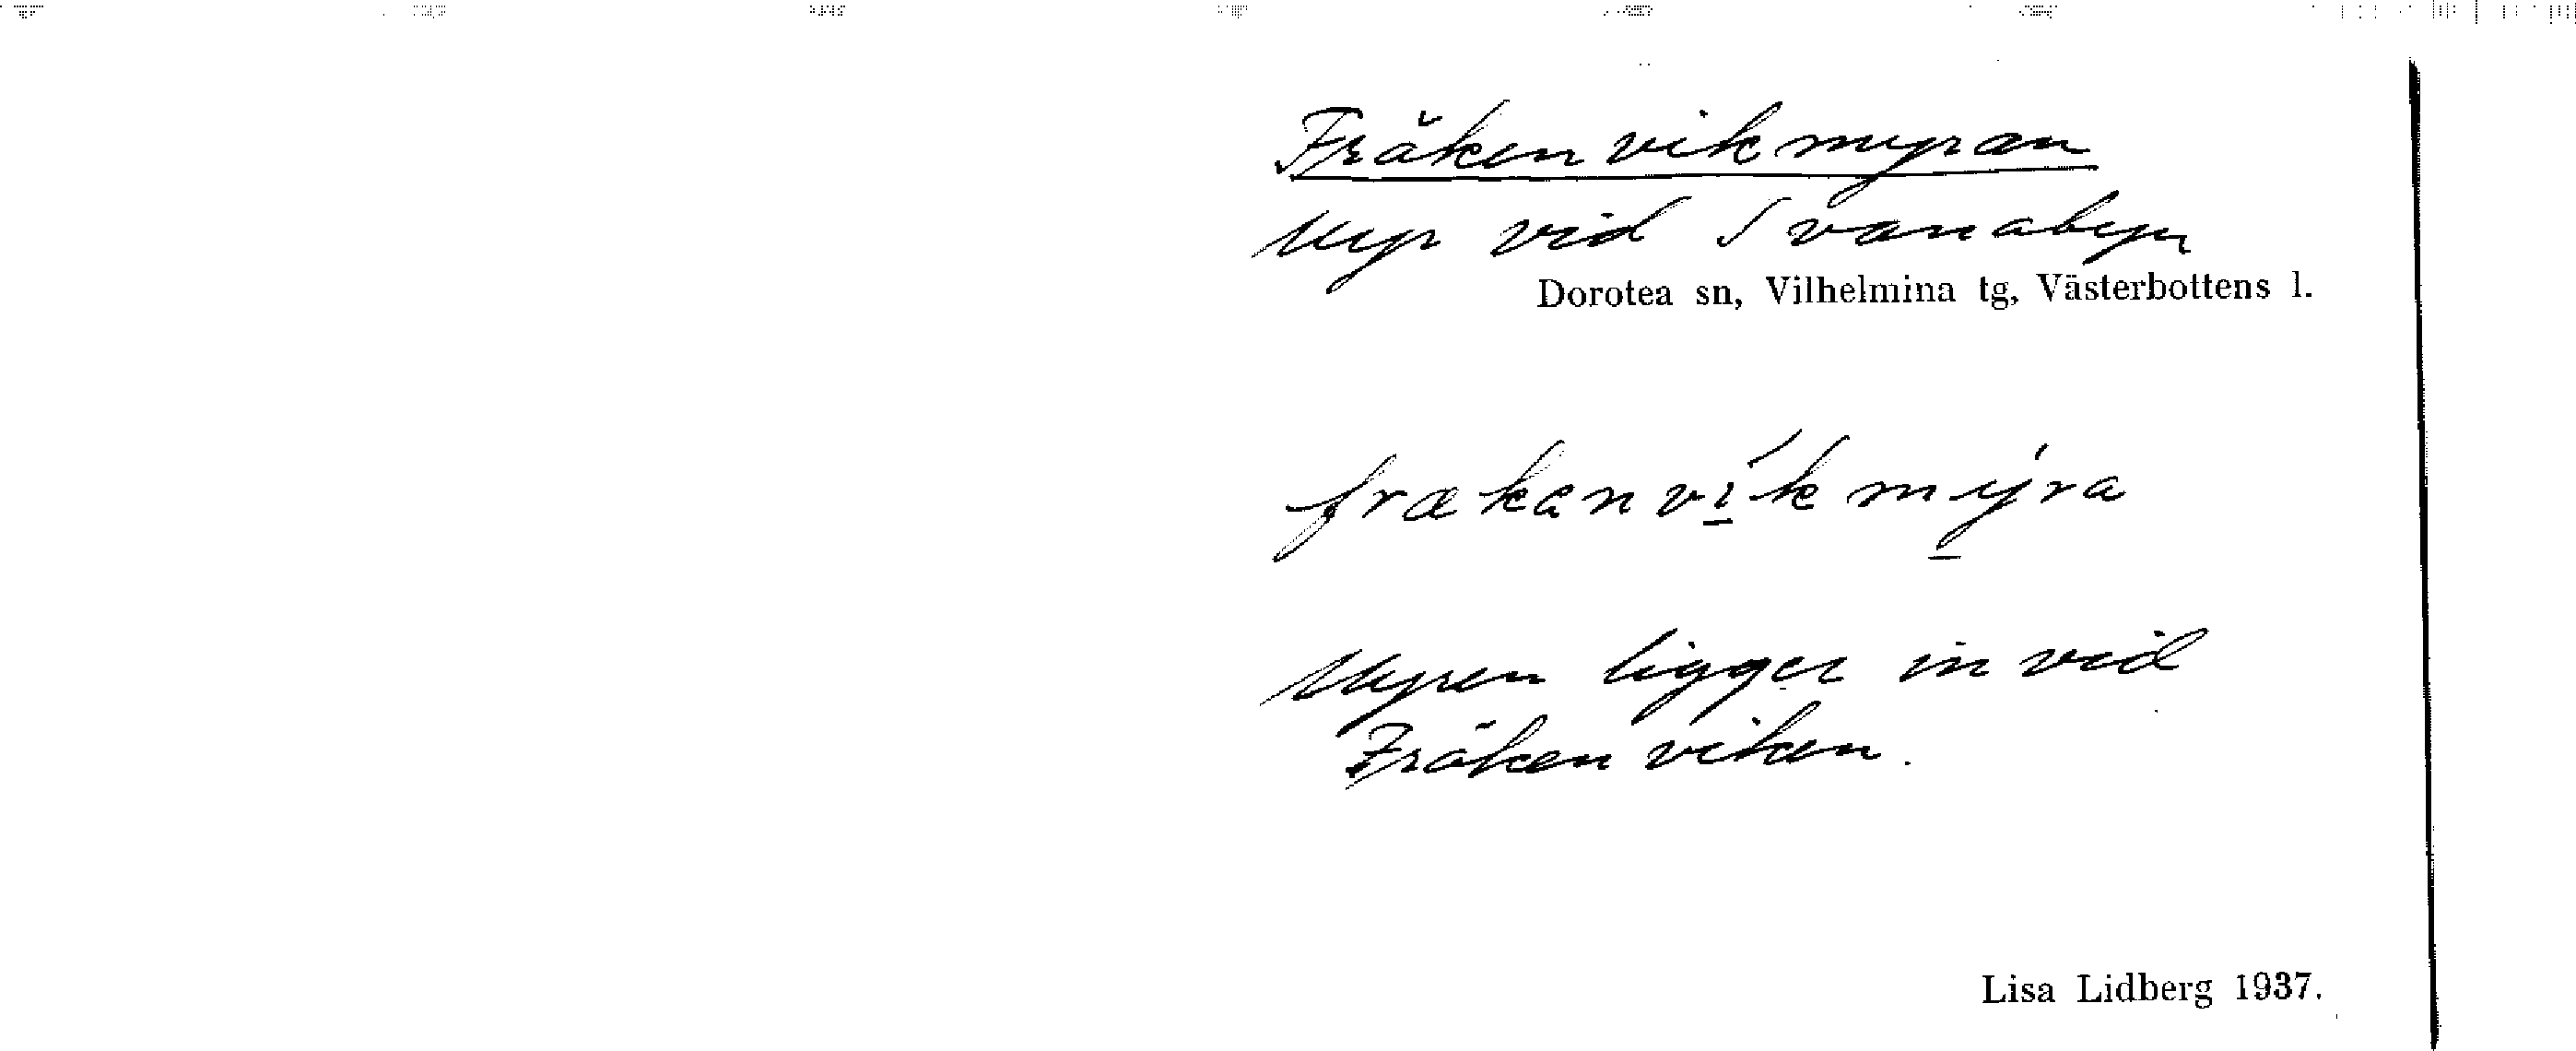 Fräkenvikmyran
Myr vid Svanabyn
Dorotea sn, Vilhelmina tg, Västerbottens l.
frækanvíkmýra
Myren ligger invid
Fräkenviken.
Lisa Lidberg 1937.